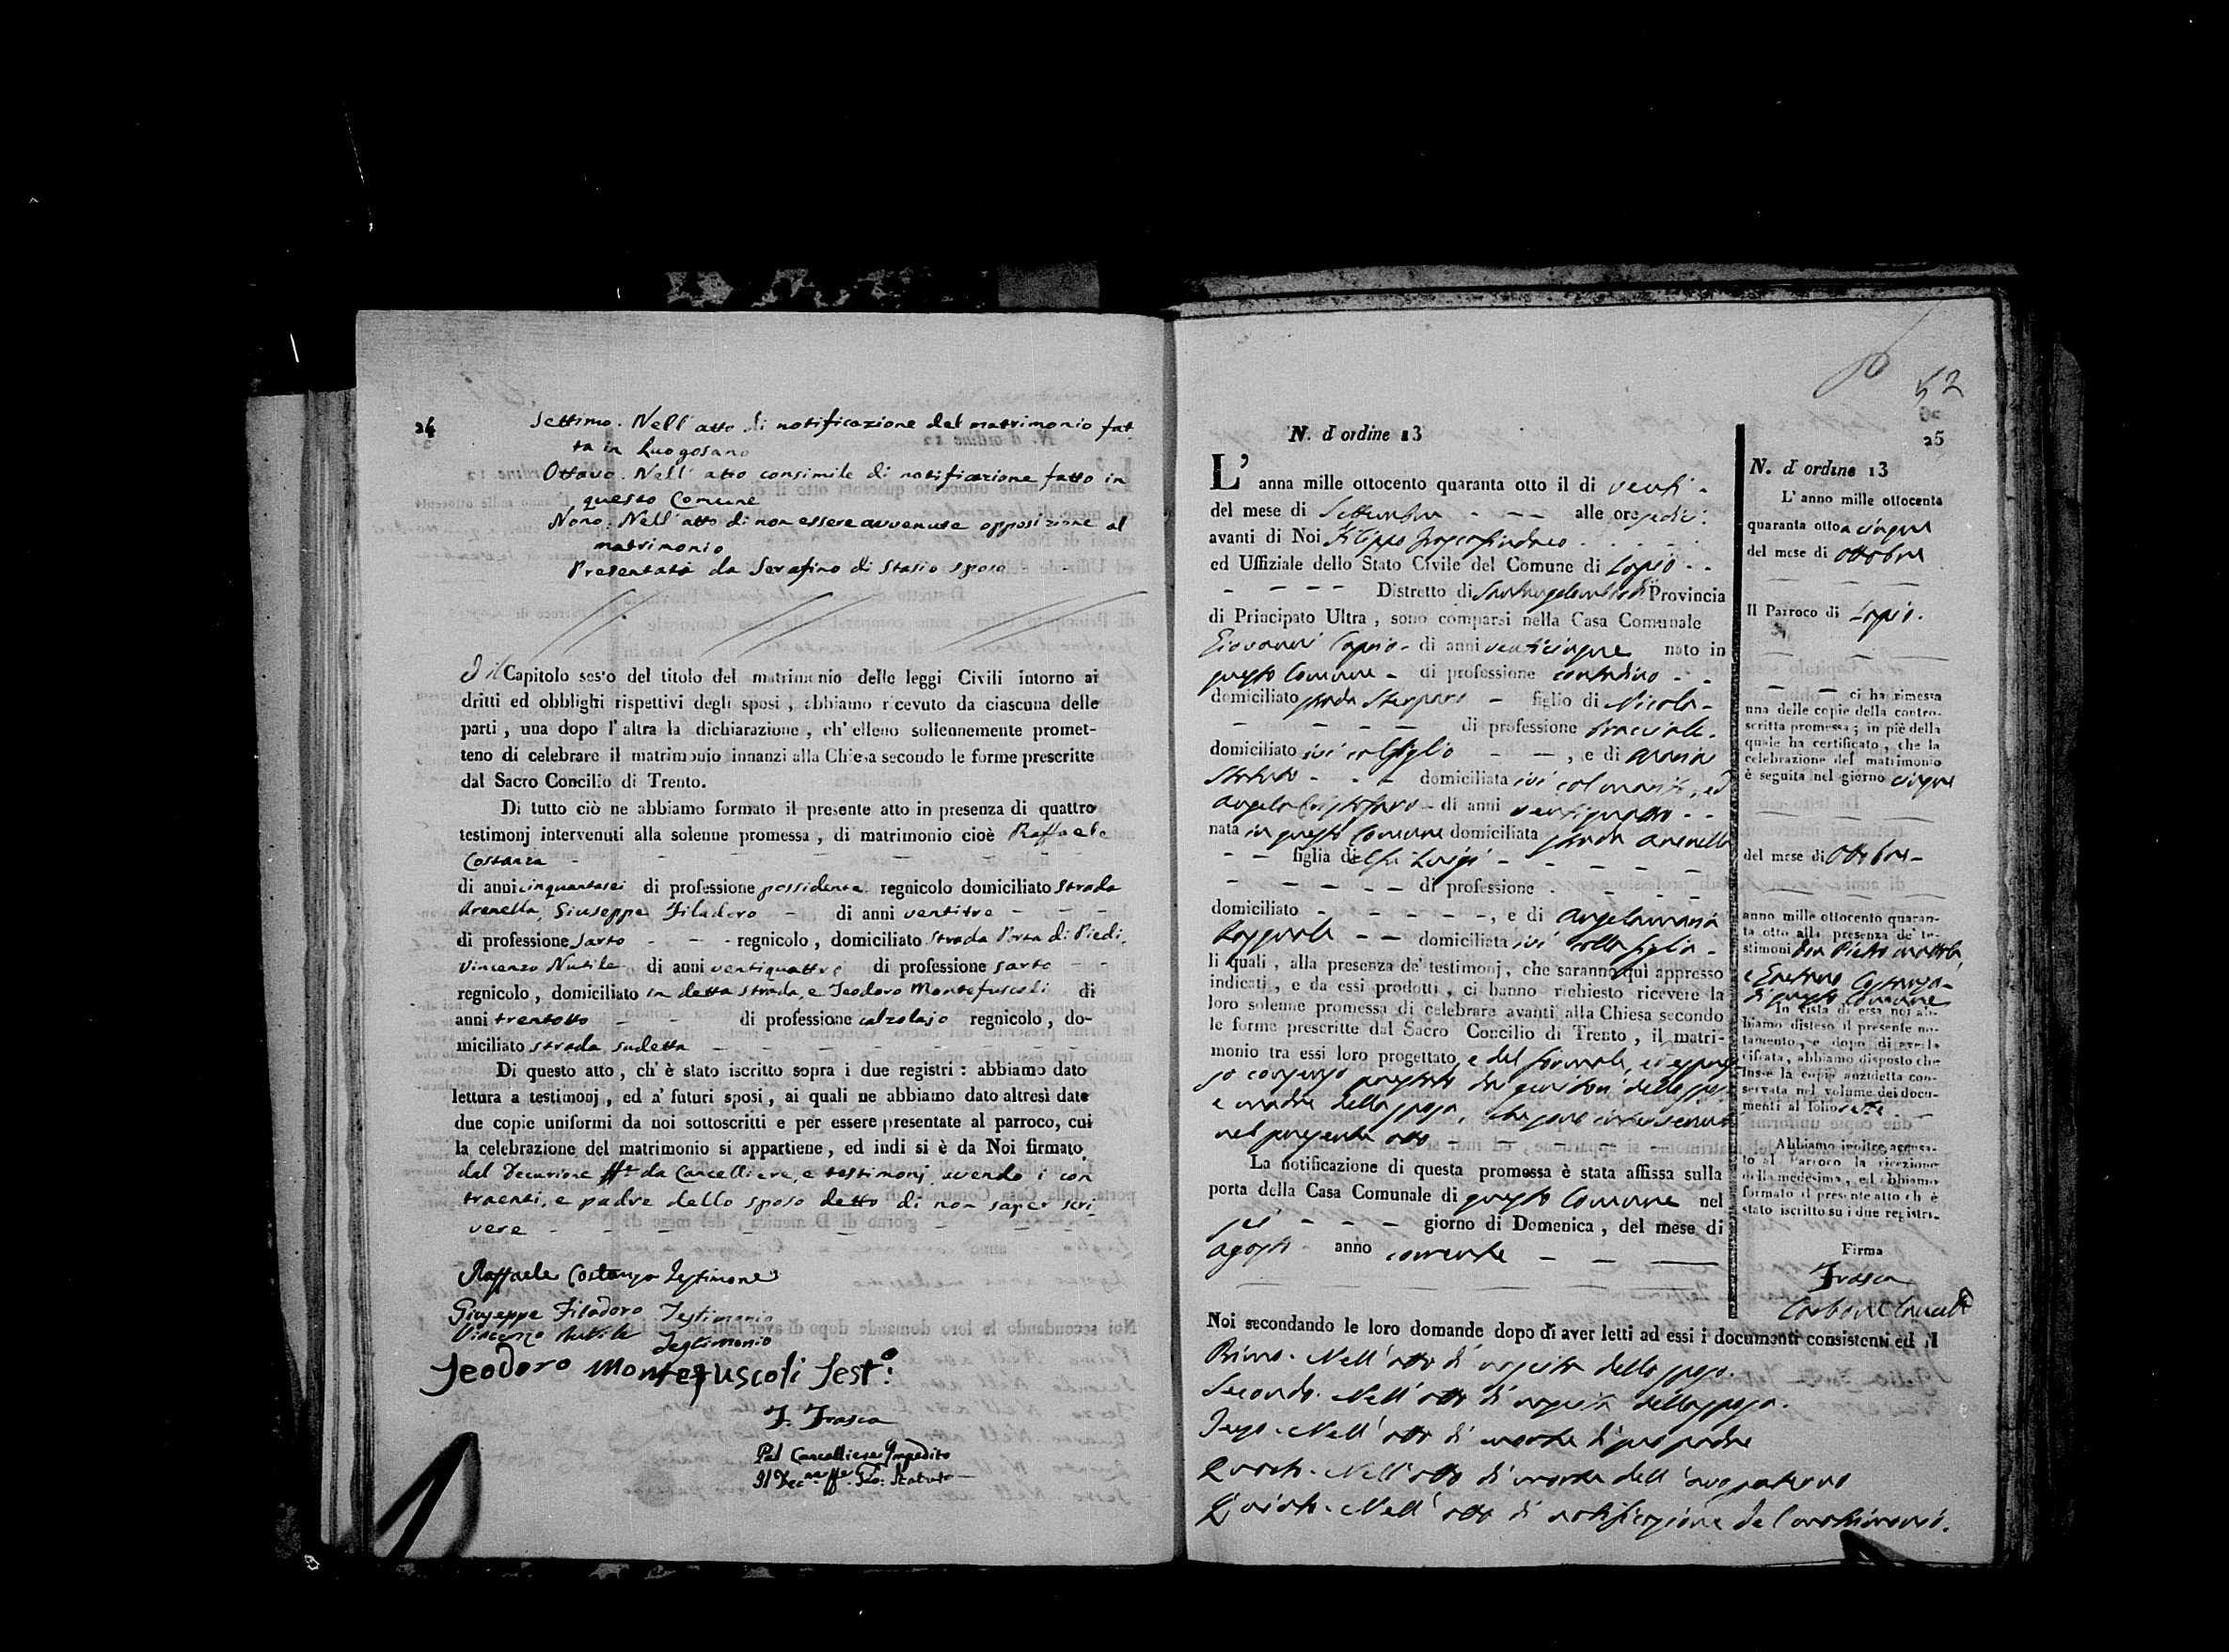 24
Settimo. Nell'atto di notificazione del matrimonio fat
ta in Luogosano
Ottavo. Nell'atto consimile di notificazione fatto in
questo Comune
Nono. Nell'atto di non essere avvenute opposizione al
matrimonio
Presentati da Serafino di Stasio sposo
Capitolo sesto del titolo del matrimonio delle leggi Civili intorno ai
dritti ed obblighi rispettivi degli sposi, abbiamo ricevuto da ciascuna delle
parti, una dopo l'altra la dichiarazione, ch'elleno sollennemente promet-
teno di celebrare il matrimonio innanzi alla Chiesa secondo le forme prescritte
dal Sacro Concilio di Trento.
Di tutto ciò ne abbiamo formato il presente atto in presenza di quattro
testimonj intervenuti alla solenne promessa, di matrimonio cioè Raffaele
Costanza
di anni cinquantasei di professione possidente regnicolo domiciliato strada
Arenella, Giuseppe Filadoro di anni ventitre
di professione sarto regnicolo, domiciliato strada Porta di Piedi,
Vincenzo Nutile di anni ventiquattro di professione sarto
regnicolo, domiciliato in detta strada, e Teodoro Montefuscoli di
anni trentotto di professione calzolajo regnicolo, do-
miciliato strada sudetta
Di questo atto, ch'è stato iscritto sopra i due registri: abbiamo dato
lettura a testimonj, ed a' futuri sposi, ai quali ne abbiamo dato altresì date
due copie uniformi da noi sottoscritti e per essere presentate al parroco, cui
la celebrazione del matrimonio si appartiene, ed indi si è da Noi firmato
dal Decurione ff. da Cancelliere, e testimonj avendo i con
traenti, e padre dello sposo detto di non saper scri
vere
Raffaele Costanza Testimone
Giuseppe Filadoro Testimonio
Vincenzo Nutile Testimonio
Teodoro Montefuscoli Test.o
F. Frasca
Pel Cancelliere Impedito
Il Dec.ne ff. Gio: Statuto
52
25
N. d'ordine 13
L'anna mille ottocento quaranta otto il di venti
del mese di Settembre alle ore sedici
avanti di Noi Filippo Frasca Sindaco
ed Uffiziale dello Stato Civile del Comune di Lapio
Distretto di Santangelo Provincia
di Principato Ultra, sono comparsi nella Casa Comunale
Giovanni Caprio di anni venticinque nato in
questo Comune di professione contadino
domiciliato strada figlio di Nicola
di professione bracciale
domiciliato ivi col figlio, e di Maria
Statuto domiciliata ivi col marito, ed
Angela di anni ventiquattro
nata in questo Comune domiciliata strada Arenella
figlia del fu Luigi
di professione
domiciliato, e di Angelamaria
domiciliata ivi colla figlia
li quali, alla presenza de' testimonj, che saranno quì appresso
indicati, e da essi prodotti, ci hanno richiesto ricevere la
loro solenne promessa di celebrare avanti alla Chiesa secondo
le forme prescritte dal Sacro Concilio di Trento, il matri-
monio tra essi loro progettato, e del formale, ed espres
so consenso prestato dai genitori dello sposo
e madre della sposa, che sono intervenuti
nel presente atto
La notificazione di questa promessa è stata affissa sulla
porta della Casa Comunale di questo Comune nel
sei giorno di Domenica, del mese di
Agosto anno corrente
Noi secondando le loro domande dopo di aver letti ad essi i documenti consistenti ed il
Primo. Nell'atto di nascita dello sposo.
Secondo. Nell'atto di nascita della sposa.
Terzo. Nell'atto di morte di suo padre
Quarto. Nell'atto di morte dell'avo paterno
Quinto. Nell'atto di notificazione del matrimonio.
N. d'ordine 13
L'anno mille ottocento
quaranta otto a cinque
del mese di Ottobre
Il Parroco di Lapio.
ci ha rimessa
una delle copie della contro-
scritta promessa; in piè della
quale ha certificato, che la
celebrazione del matrimonio
è seguita nel giorno cinque
del mese di Ottobre
anno mille ottocento quaran-
ta otto alla presenza de' te-
stimoni Don Pietro
e Gaetano Costanza
di questo Comune
In vista di essa noi ab-
biamo disteso il presente no-
tamento, e dopo di averla
cifrata, abbiamo disposto che
fosse la copia anzidetta con-
servata nel volume dei docu-
menti al folio sette
Abbiamo inoltre accusa-
to al Parroco la ricezione
della medesima, ed abbiamo
formato il presente atto ch'è
stato iscritto su i due registri.
Firma
Frasca
Carbone